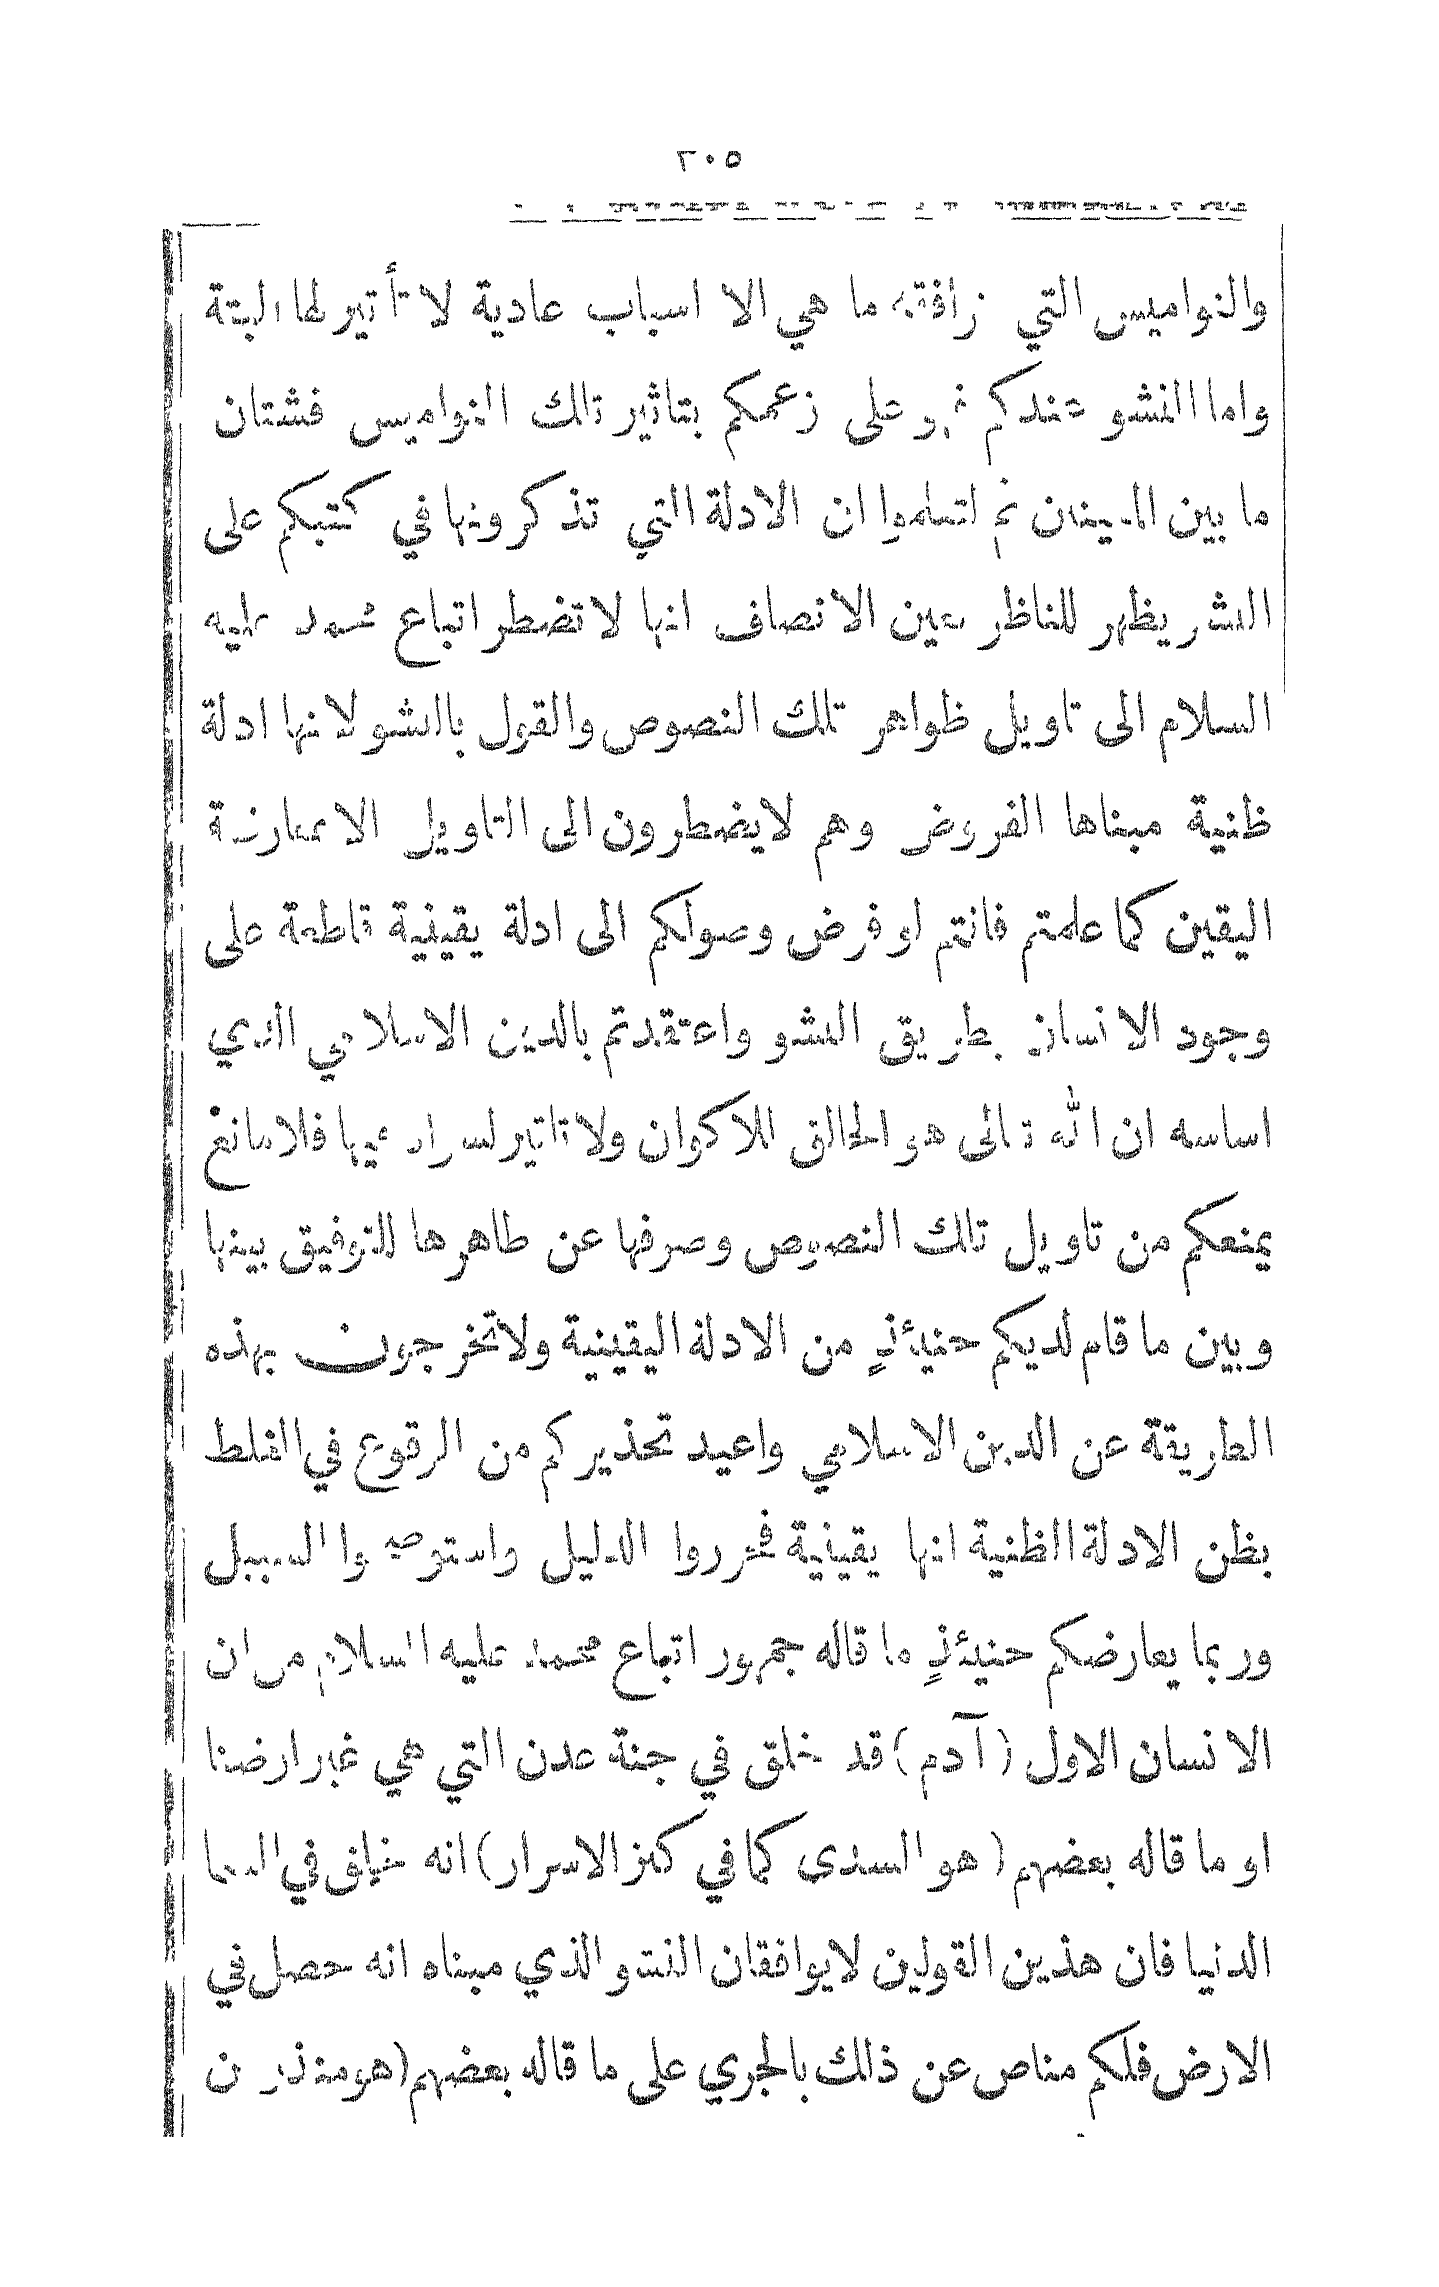 ٣٠٥
والنواميس التي ترافقه ما هي الا اسباب عادية لا تأثير لها البتة
واما النشو عندكم فهو على زعمكم بتاثير تلك النواميس فشتان
ما بين المبنيين ثم لتعلموا ان الادلة التي تذكرونها في كتبكم على
النشو يظهر للناظر بعين الانصاف انها لا تضطر اتباع محمد عليه
السلام الى تاويل ظواهر تلك النصوص والقول بالنشو لانها ادلة
ظنية مبناها الفروض وهم لا يضطرون الى التاويل الا بمعارضة
اليقين كما علمتم فانتم لو فرض وصولكم الى ادلة يقينية قاطعة على
وجود الانسان بطريق النشو واعتقدتم بالدين الاسلامي الذي
اساسه ان الله تعالى هو الخالق للاكوان ولا تاثير لسواه فيها فلا مانع
يمنعكم من تاويل تلك النصوص وصرفها عن ظاهرها للتوفيق بينها
وبين ما قام لديكم حنيئذٍ من الادلة اليقينية ولا تخرجون بهذه
الطريقة عن الدين الاسلامي واعيد تحذيركم من الوقوع في الغلط
بظن الادلة الظنية انها يقينية فحرروا الدليل واستوضحوا السبيل
وربما يعارضكم حنيئذٍ ما قاله جمهور اتباع محمد عليه السلام من ان
الانسان الاول (آدم) قد خلق في جنة عدن التي هي غير ارضنا
او ما قاله بعضهم (هو السدى كما في كنز الاسرار) انه خلق في السما
الدنيا فان هذين القولين لا يوافقان النشو الذي مبناه انه حصل في
الارض فلكم مناص عن ذلك بالجري على ما قاله بعضهم (هو منذر بن